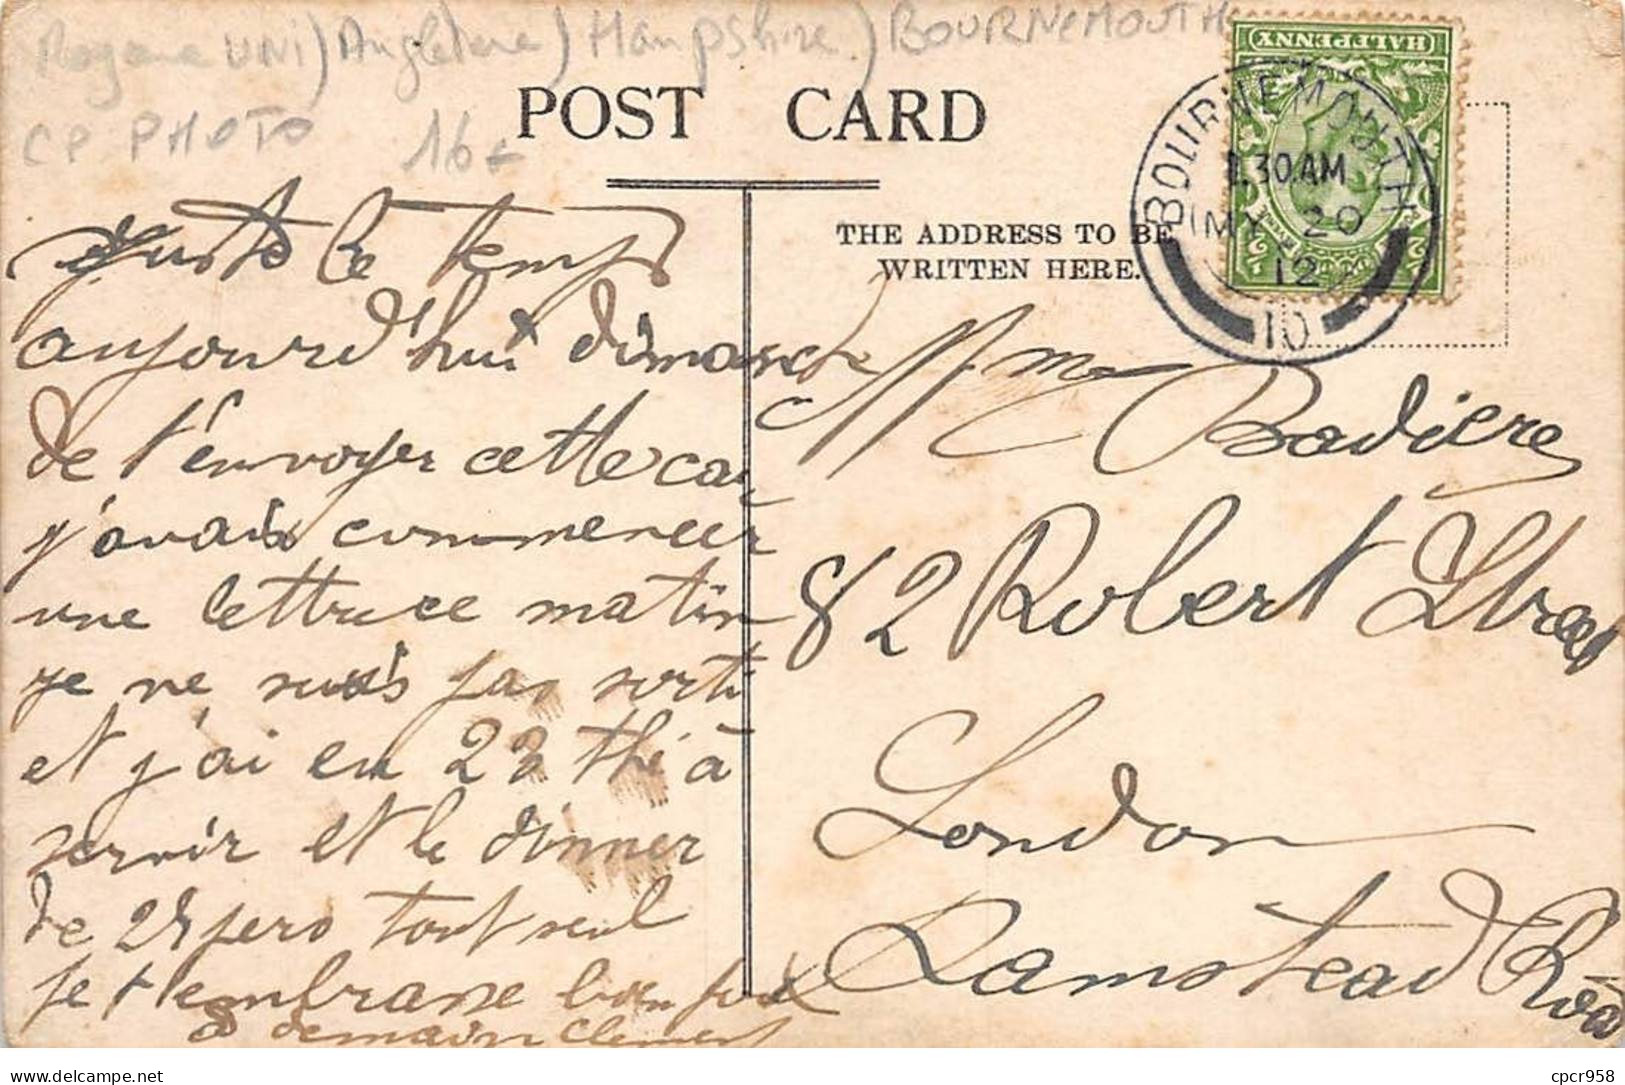 Royaume UNI) Angleterre) Hampshire) BOURNEMOUTH
CP PHOTO 16€
POST CARD
HALFPENNY
BOURNEMOUTH
1.30AM
MY 20
12
10
THE ADDRESS TO BE
WRITTEN HERE.
juste le temps
aujourd'hui dimanche
de t'envoyer cette car
j'avais commencer
une lettre ce matin
je ne suis pas sorti
et j'ai eu 23 thé à
servir et le dinner
de 25 pers tout seul
Je t'embrasse bien fort
a demain Clement
Mme Badiere
82 Robert Street
London
Hamstead Road
cpcr958